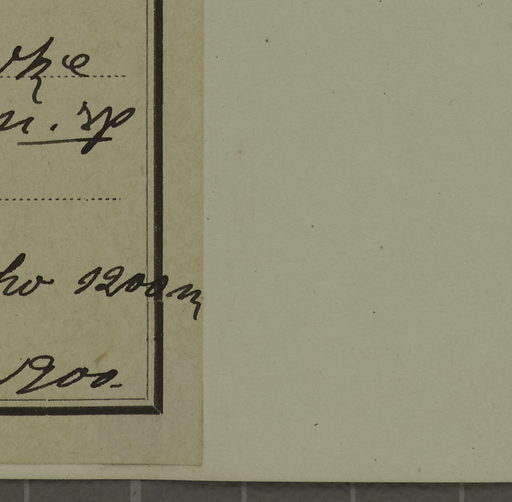 n. sp
ho 1200 m
1900.